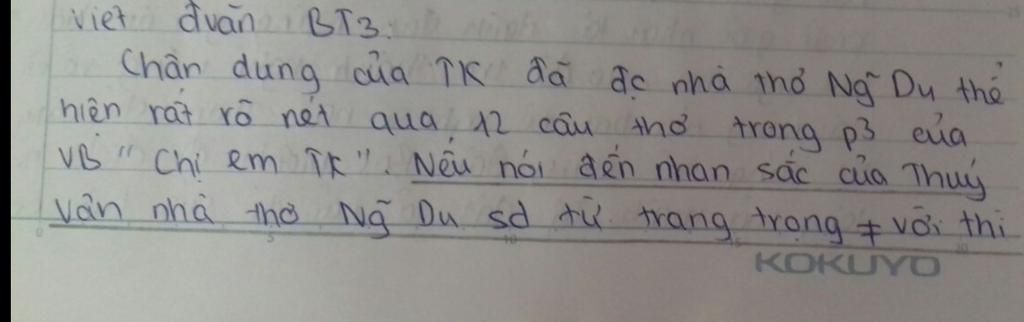 Viết đvăn BT3.
Chân dung của TK đã đc nhà thơ Ng̃ Du thể
hiện rất rõ nét qua 12 câu thơ trong p3 của
VB "Chị em TK". Nếu nói đến nhan sắc của Thuý
Vân nhà thơ Ng̃ Du sd từ trang trọng ≠ với thì
KOKUYO